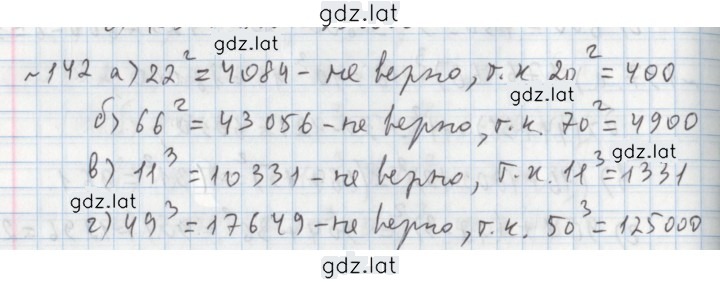 gdz.lat
gdz.lat
~142 а) 22² = 4084 - не верно, т.к 20² = 400
gdz.lat
б) 66² = 43056 - не верно, т.к. 70² = 4900
gdz.lat
в) 11³ = 10331 - не верно, т.к. 11³ = 1331
gdz.lat
г) 49³ = 17649 - не верно, т.к. 50³ = 125000
gdz.lat